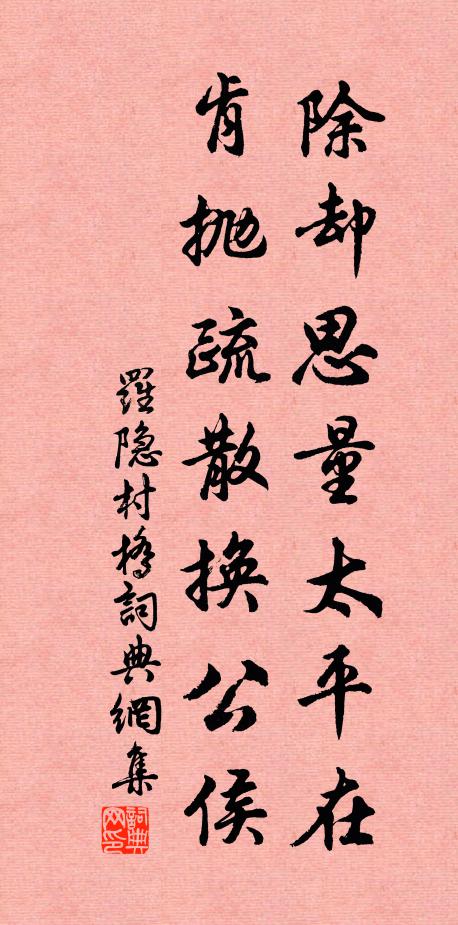 除却思量太平在
肯抛疏散換公侯
羅隐村橋詞典網集
詞典网印